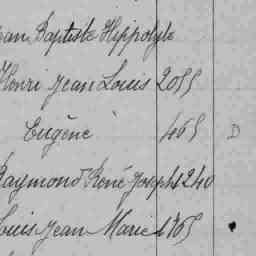 Jean Baptiste Hippolyte
Henri Jean Louis 2055
Eugène 465 D
Raymond René Joseph 1240
Louis Jean Marie 1765